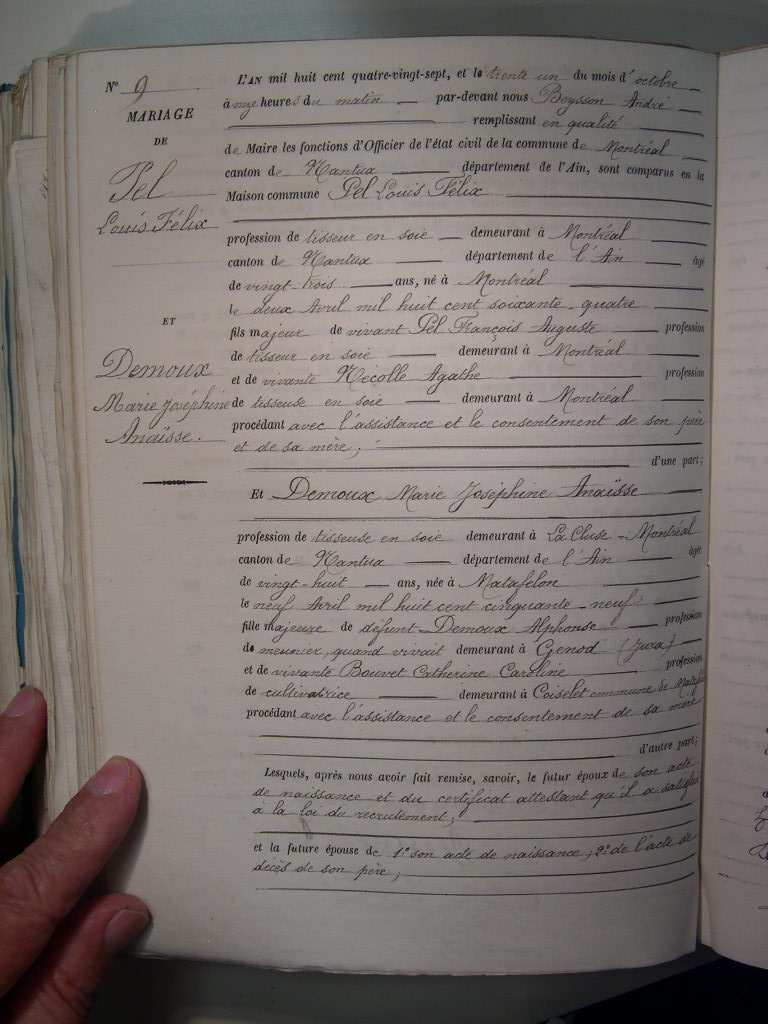 N° 9
MARIAGE
DE
Pel
Louis Félix
ET
Demoux
Marie Joséphine
Anaïsse.
L'AN mil huit cent quatre-vingt-sept, et le trente un du mois d'octobre
à onze heures du matin par-devant nous Boysson André
remplissant en qualité
de Maire les fonctions d'Officier de l'état civil de la commune de Montréal
canton de Nantua département de l'Ain, sont comparus en la
Maison commune Pel Louis Félix
profession de tisseur en soie demeurant à Montréal
canton de Nantua département de l'Ain âgé
de vingt-trois ans, né à Montréal
le deux Avril mil huit cent soixante-quatre
fils majeur de vivant Pel François Auguste profession
de tisseur en soie demeurant à Montréal
et de vivante Necolle Agathe profession
de tisseuse en soie demeurant à Montréal
procédant avec l'assistance et le consentement de son père
et de sa mère;
d'une part;
Et Demoux Marie Joséphine Anaïsse
profession de tisseuse en soie demeurant à La Cluse - Montréal
canton de Nantua département de l'Ain âgée
de vingt-huit ans, née à Matafelon
le neuf Avril mil huit cent cinquante-neuf
fille majeure de défunt Demoux Alphonse profession
de meunier, quand vivait demeurant à Genod (Jura)
et de vivante Bouvet Catherine Caroline profession
de cultivatrice demeurant à Coiselet commune de
procédant avec l'assistance et le consentement de sa mère
d'autre part;
Lesquels, après nous avoir fait remise, savoir, le futur époux de son acte
de naissance et du certificat attestant qu'il a satisfait
à la loi du recrutement;
et la future épouse de 1° son acte de naissance; 2° de l'acte de
décès de son père;